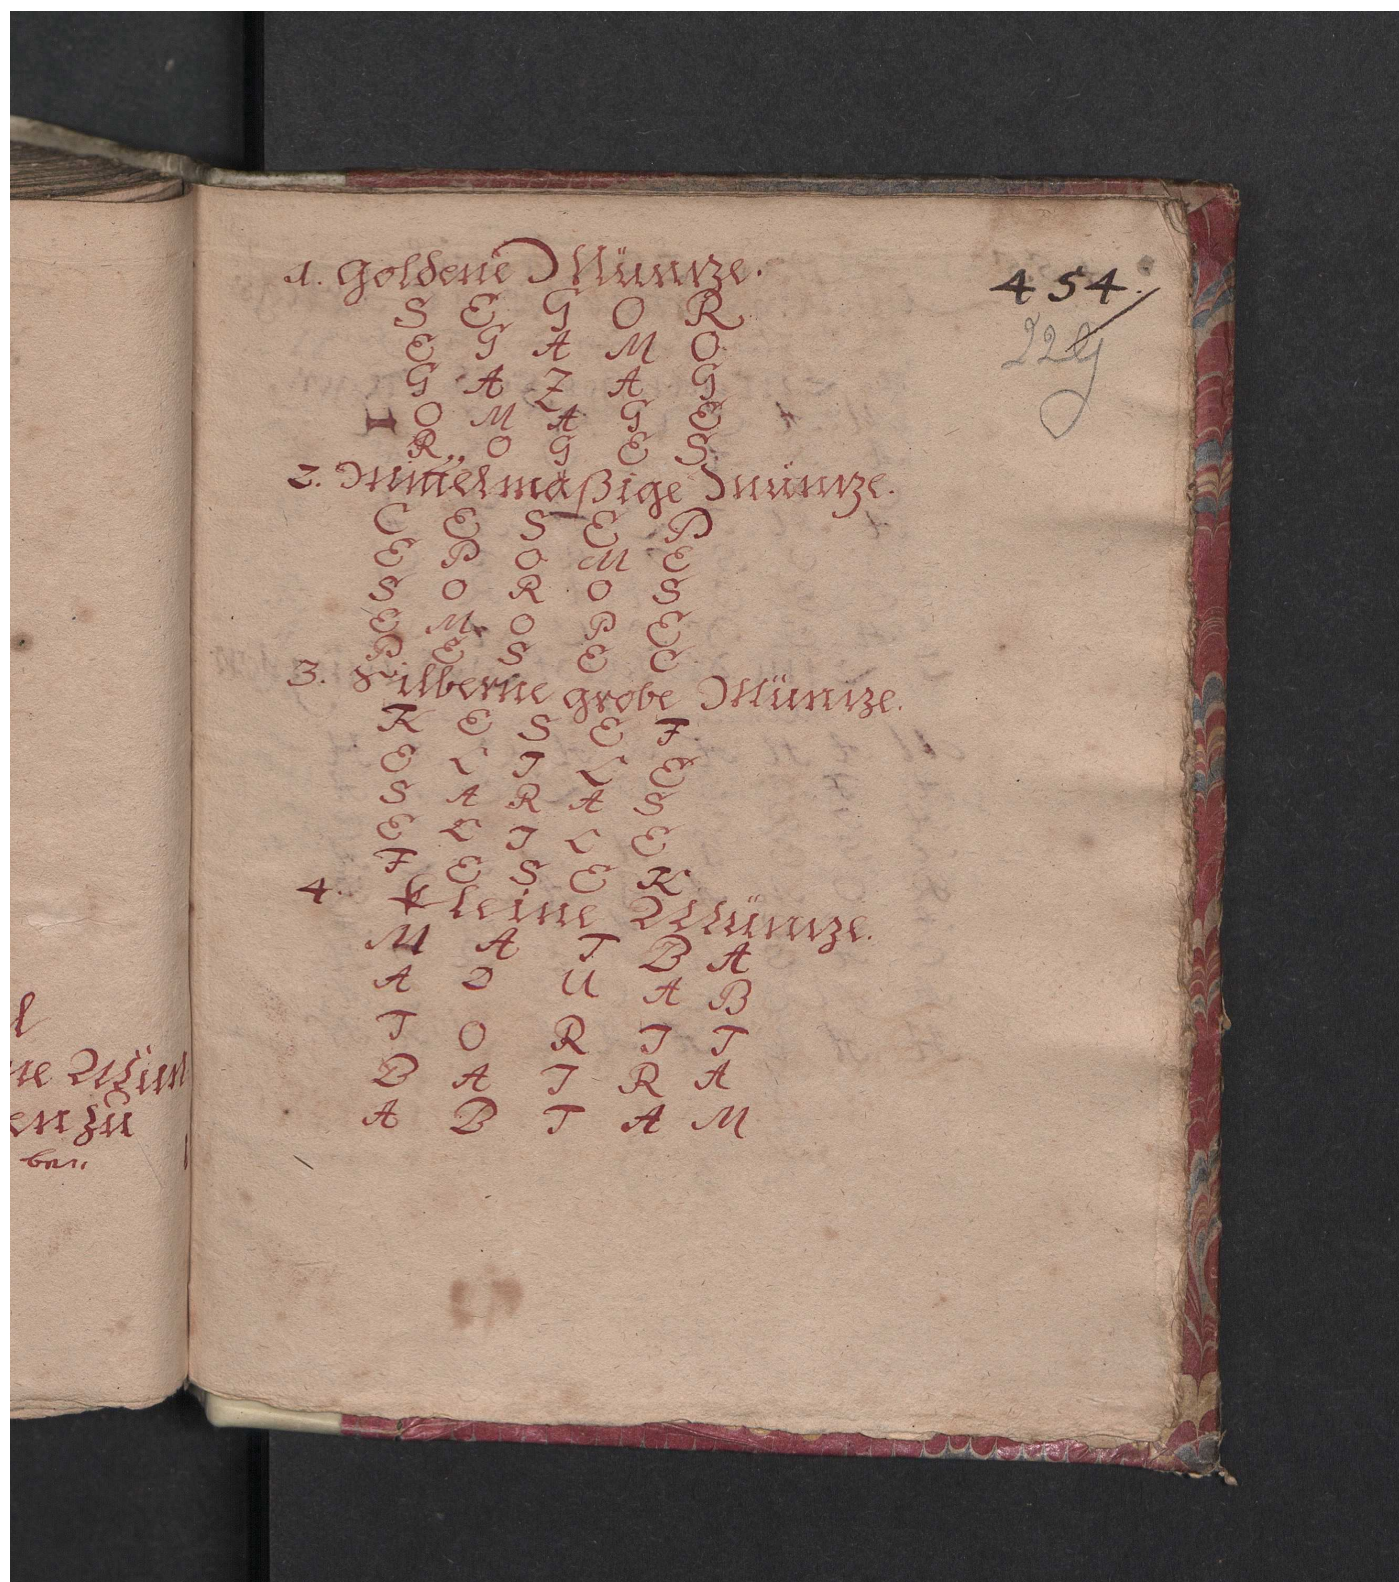 454.
229
1. Goldene Müntze.
S E G O R
E G A M O
G A Z A G
O M A G E
R O G E S
2. Mittelmäßige Müntze.
C E S E P
E P O M E
S O R O S
E M O P E
P E S E C
3. Silberne grobe Müntze.
K E S E F
E L I L E
S A R A S
E L I L E
F E S E K
4. Kleine Müntze.
M A T B A
A O U A B
T O R I T
B A I R A
A B T A M
ne Mün
en zu
ben